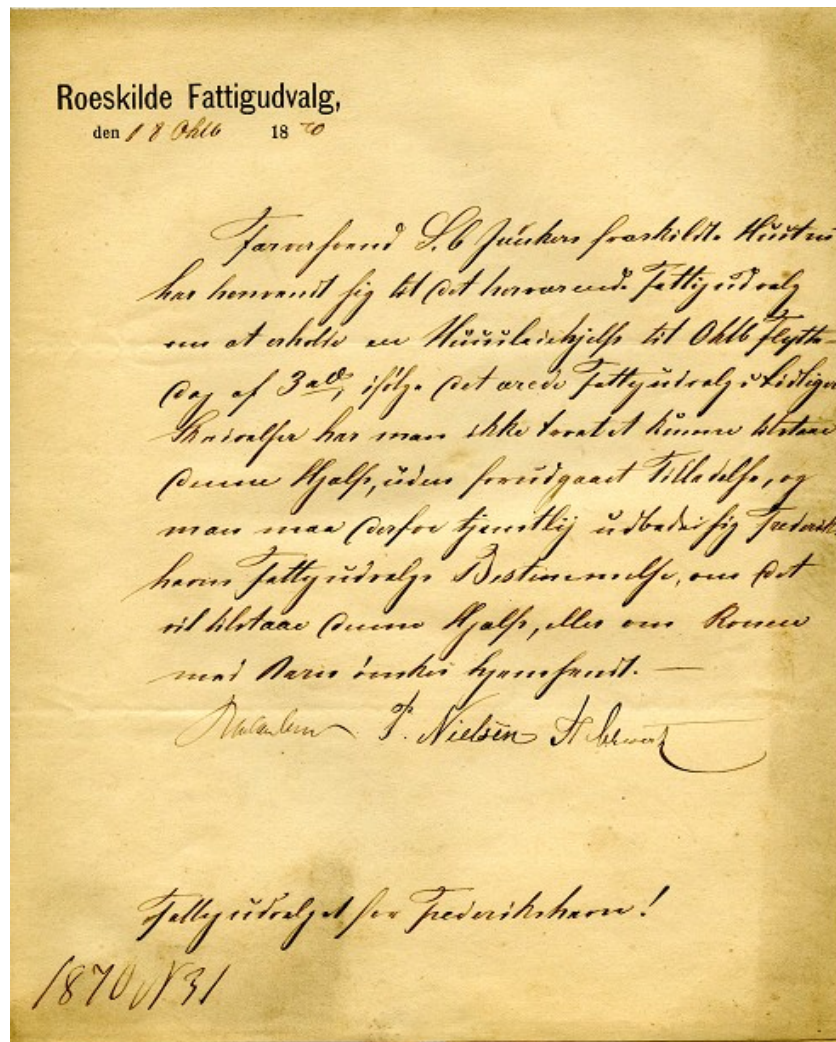 Roeskilde Fattigudvalg,
den 18 Oktb 1870
Farversvend S. C. Junkers fraskildte Hustru
har henvendt sig til det herværende Fattigudvalg
om at erholde en Huusleiehjelp til Oktb Flytte-
dag af 3 ifølge det ærede Fattigudvalgs tidligere
Skrivelser har man ikke troet at kunne tilstaae
denne Hjælp, uden forudgaaet Tilladelse, og
man maa derfor tjenstlig udbede sig Frederiks-
havns Fattigudvalgs Bestemmelse, om det
vil tilstaae denne Hjælp, eller om Konen
med Børn ønskes hjemsendt. —
P. Nielsen
Fattigudvalget for Frederikshavn!
1870 N 31